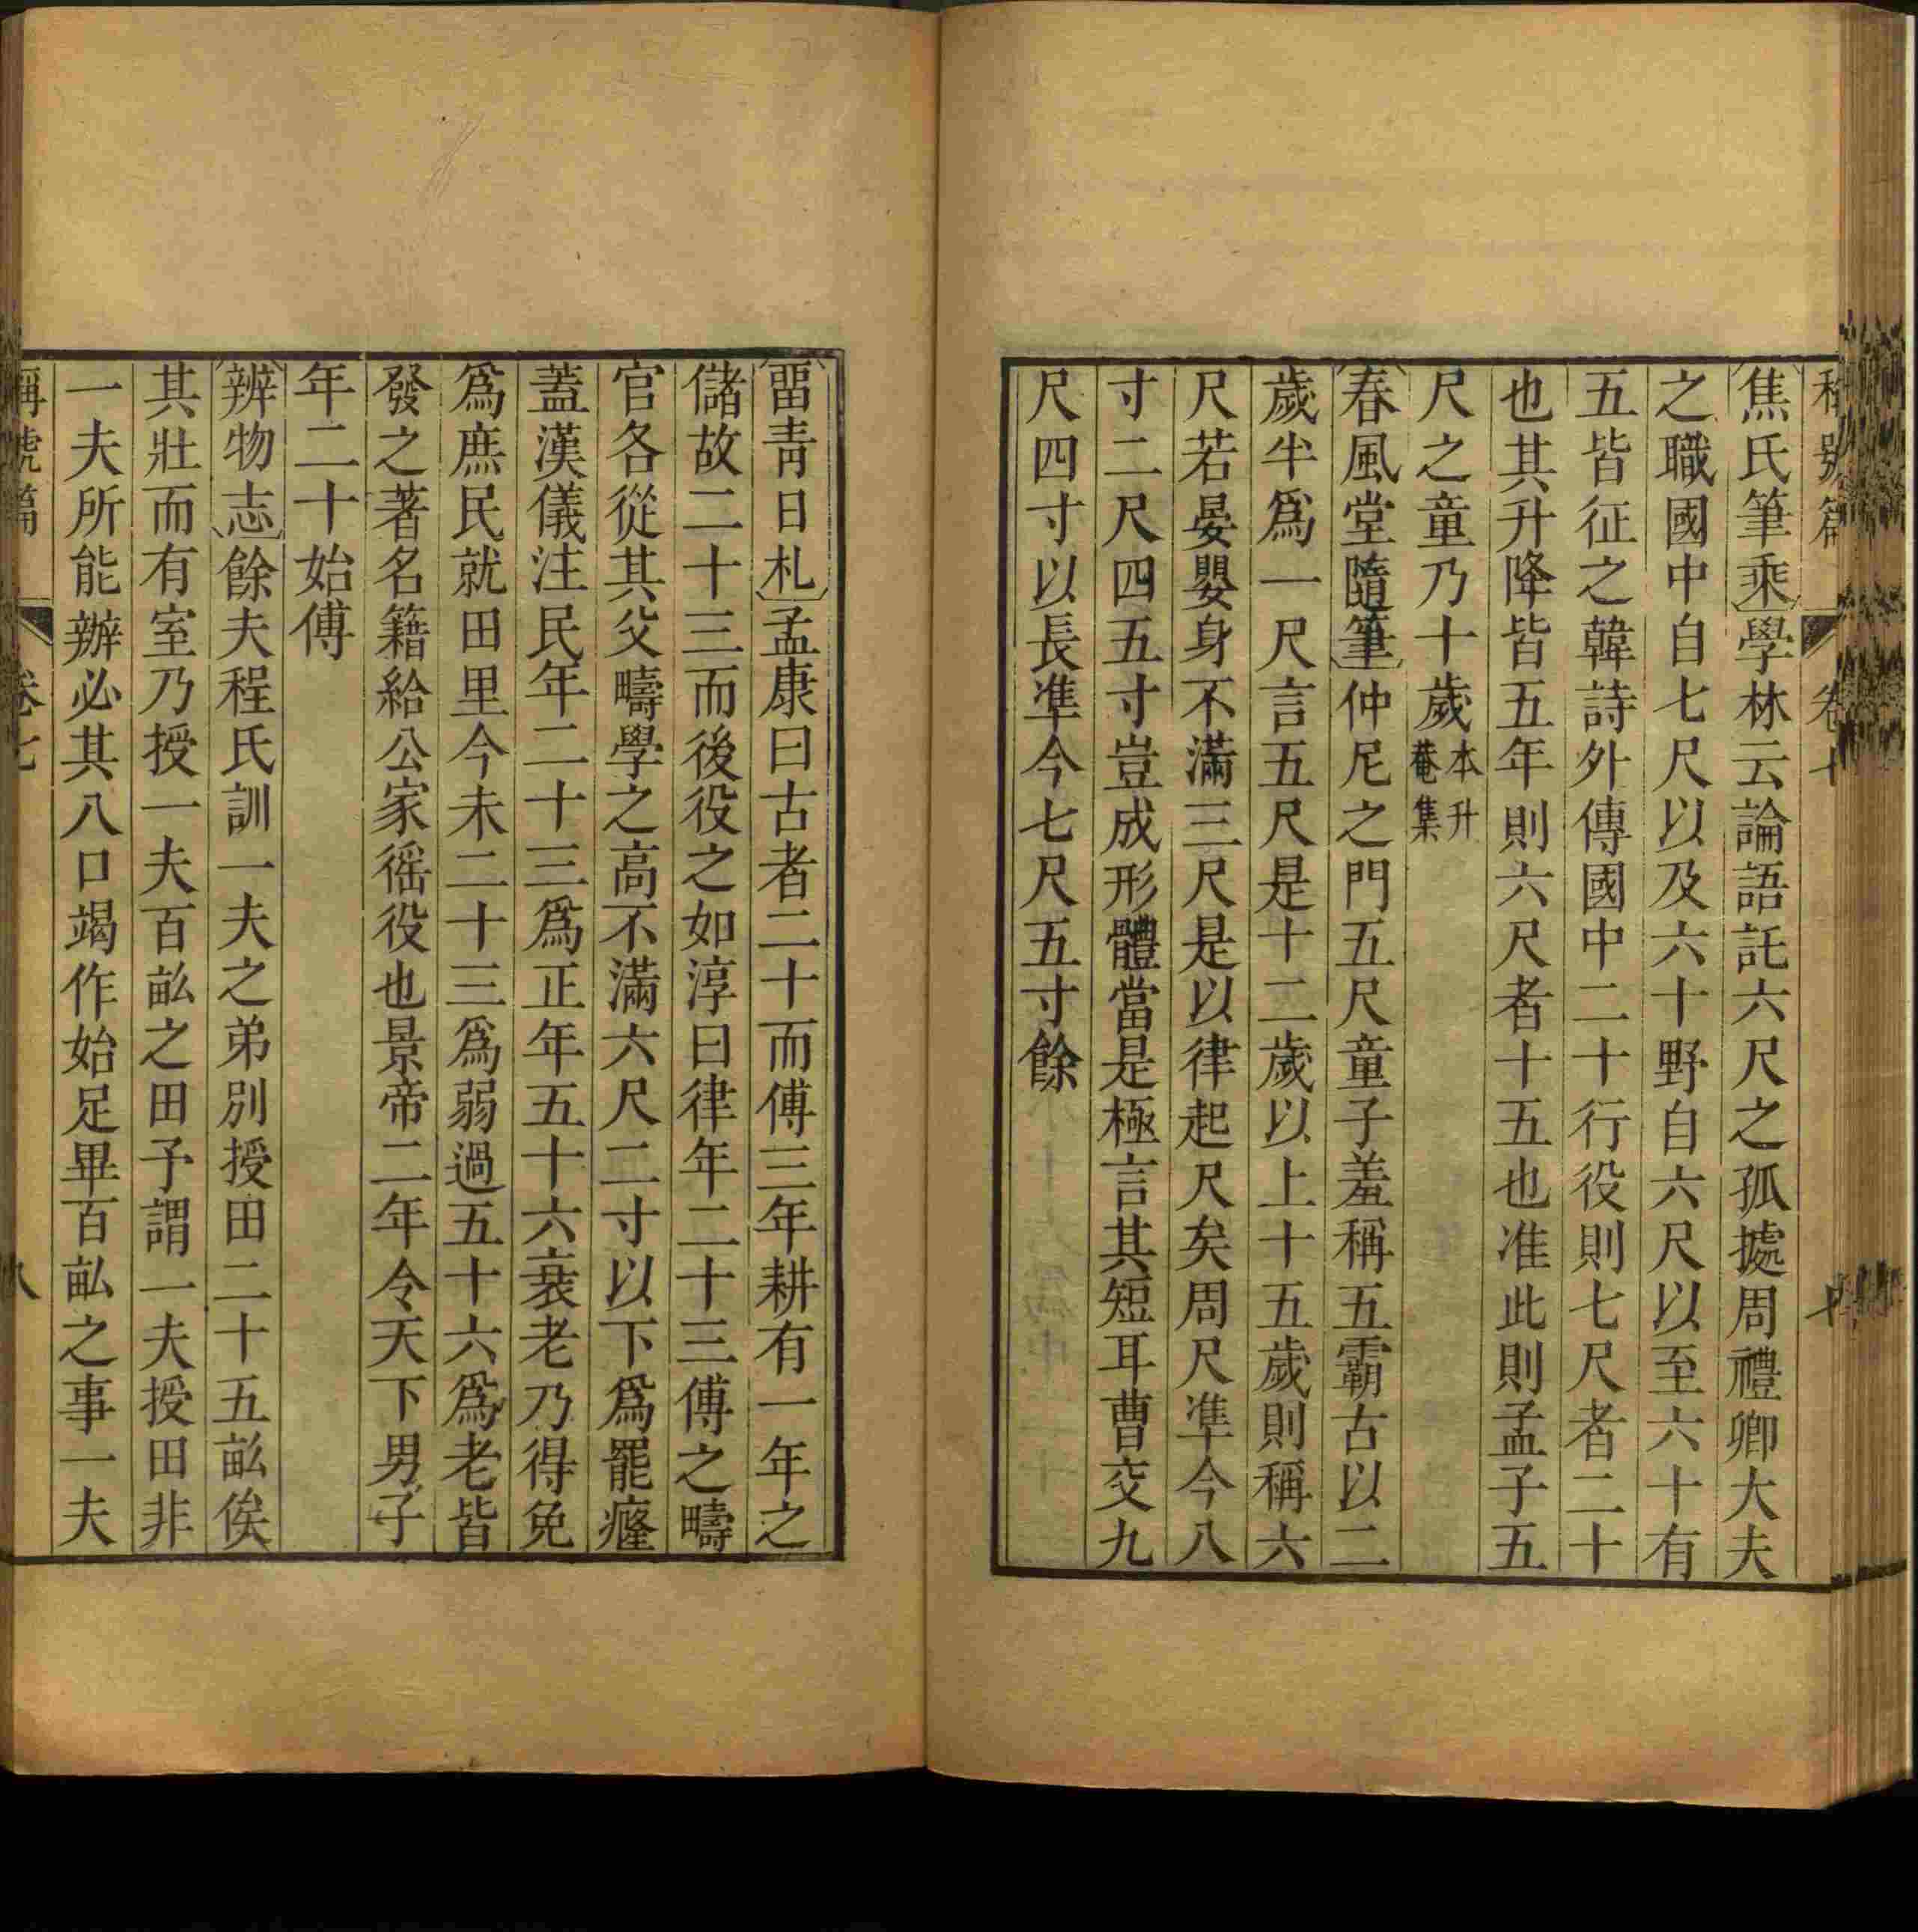 稱號篇 卷七
焦氏筆乘學林云論語託六尺之孤據周禮卿大夫
之職國中自七尺以及六十野自六尺以至六十有
五皆征之韓詩外傳國中二十行役則七尺者二十
也其升降皆五年則六尺者十五也准此則孟子五
尺之童乃十歲本升菴集
春風堂隨筆仲尼之門五尺童子羞稱五霸古以二
歲半爲一尺言五尺是十二歲以上十五歲則稱六
尺若晏嬰身不滿三尺是以律起尺矣周尺準今八
寸二尺四五寸豈成形體當是極言其短耳曹交九
尺四寸以長準今七尺五寸餘
畱靑日札孟康曰古者二十而傅三年耕有一年之
儲故二十三而後役之如淳曰律年二十三傅之疇
官各從其父疇學之高不滿六尺二寸以下爲罷癃
蓋漢儀注民年二十三爲正年五十六衰老乃得免
爲庶民就田里今未二十三爲弱過五十六爲老皆
發之著名籍給公家徭役也景帝二年令天下男子
年二十始傅
辨物志餘夫程氏訓一夫之弟別授田二十五畝俟
其壯而有室乃授一夫百畝之田予謂一夫授田非
一夫所能辦必其八口竭作始足畢百畝之事一夫
稱號篇 卷七 八